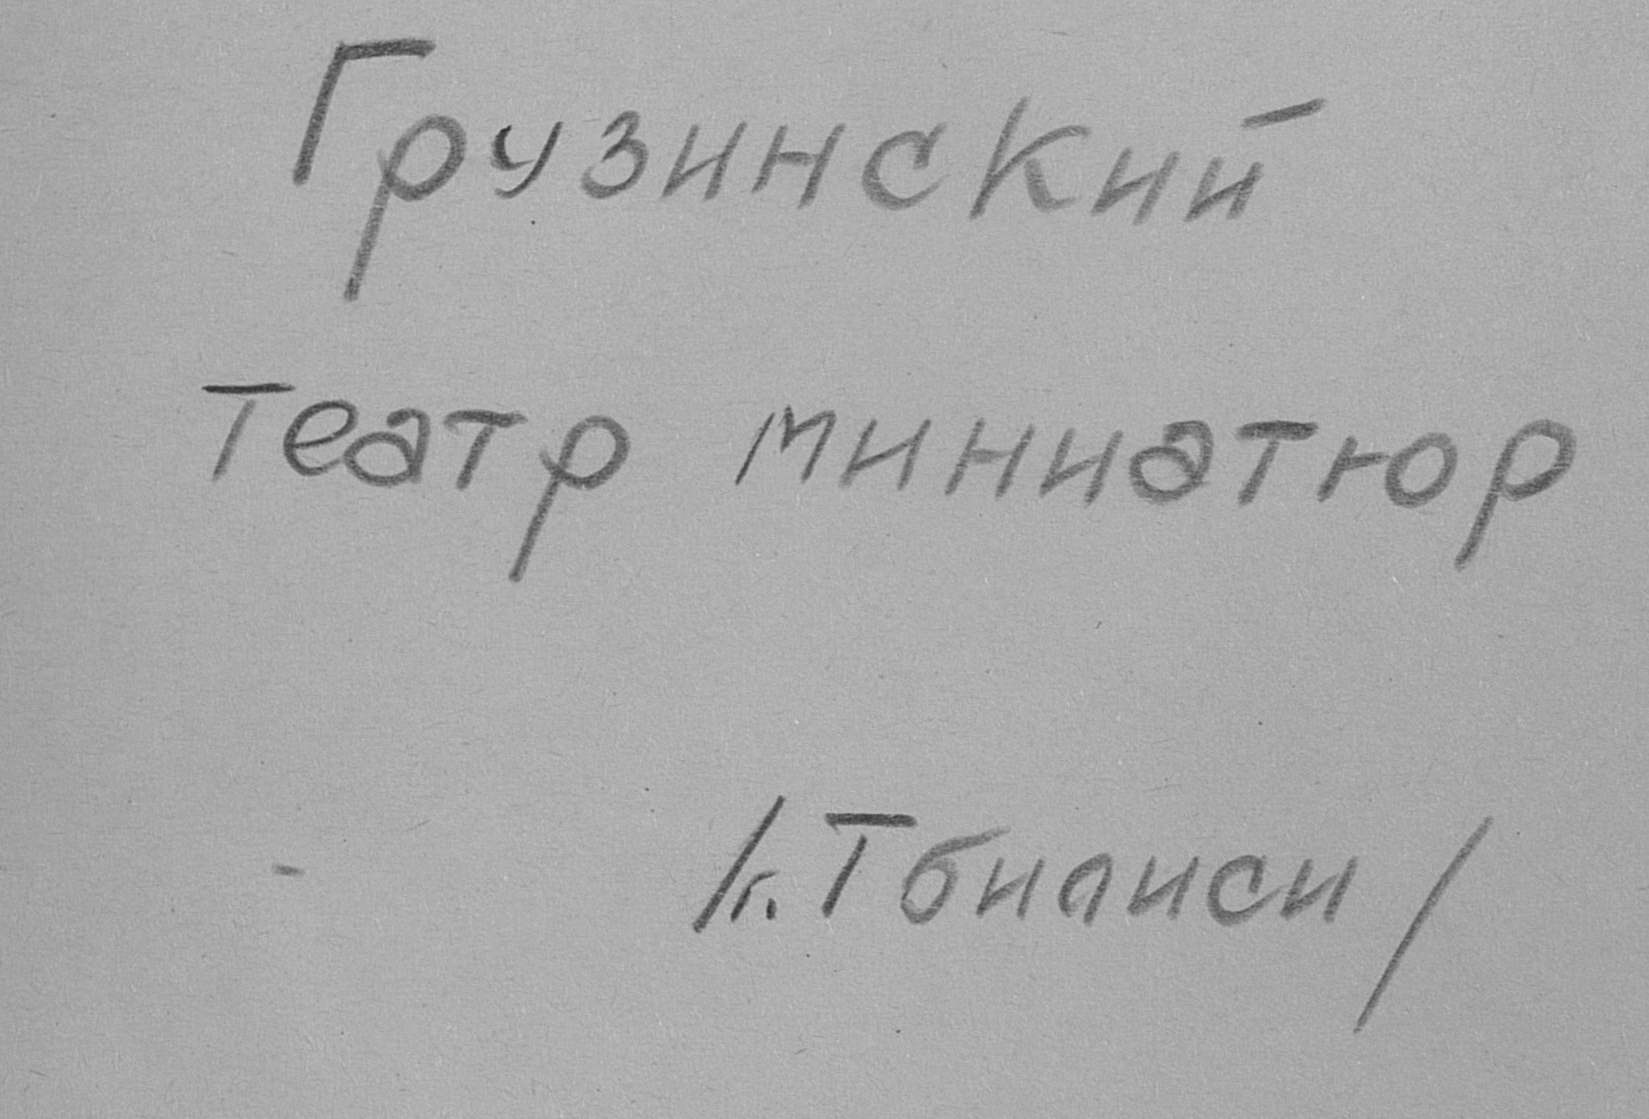 Грузинский
театр миниатюр
/г. Тбилиси/